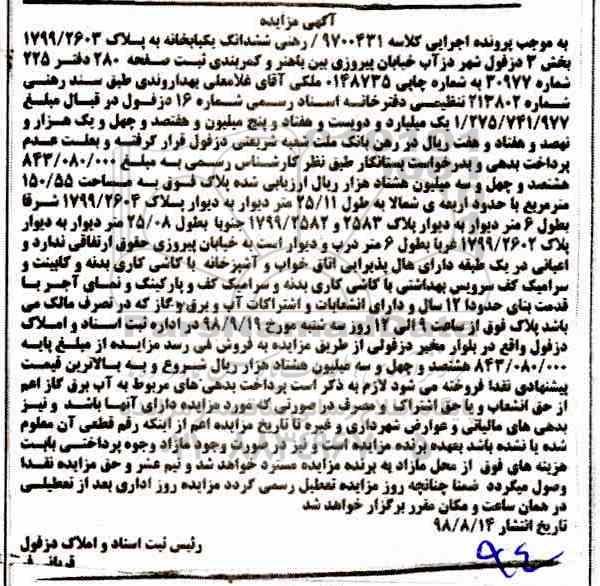 آگهی مزایده
به موجب پرونده اجرایی کلاسه ۹۷۰۰۴۳۱ / رهنی ششدانگ یکبابخانه به پلاک ۱۷۹۹/۲۶۰۳
بخش ۳ دزفول شهر دزآب خیابان پیروزی بین باهنر و کمربندی ثبت صفحه ۲۸۰ دفتر ۲۲۵
شماره ۳۰۹۷۷ به شماره چاپی ۰۱۴۸۷۳۵ ملکی آقای غلامعلی بهداروندی طبق سند رهنی
شماره ۲۱۳۸۰۲ تنظیمی دفترخانه اسناد رسمی شماره ۱۶ دزفول در قبال مبلغ
۱/۲۷۵/۷۴۱/۹۷۷ یک میلیارد و دویست و هفتاد و پنج میلیون و هفتصد و چهل و یک هزار و
نهصد و هفتاد و هفت ریال در رهن بانک ملت شعبه شریعتی دزفول قرار گرفته و بعلت عدم
پرداخت بدهی و بدرخواست بستانکار طبق نظر کارشناس رسمی به مبلغ ۸۴۳/۰۸۰/۰۰۰
هشتصد و چهل و سه میلیون هشتاد هزار ریال ارزیابی شده پلاک فوق به مساحت ۱۵۰/۵۵
مترمربع با حدود اربعه ی شمالا به طول ۲۵/۱۱ متر دیوار به دیوار پلاک ۱۷۹۹/۲۶۰۴ شرقا
بطول ۶ متر دیوار به دیوار پلاک ۲۵۸۳ و ۱۷۹۹/۲۵۸۲ جنوبا بطول ۲۵/۰۸ متر دیوار به دیوار
پلاک ۱۷۹۹/۲۶۰۲ غربا بطول ۶ متر درب و دیوار است به خیابان پیروزی حقوق ارتفاقی ندارد و
اعیانی در یک طبقه دارای هال پذیرایی اتاق خواب و آشپزخانه با کاشی کاری بدنه و کابینت و
سرامیک کف سرویس بهداشتی با کاشی کاری بدنه و سرامیک کف و پارکینگ و نمای آجر با
قدمت بنای حدودا ۱۲ سال و دارای انشعابات و اشتراکات آب و برق و گاز که در تصرف مالک می
باشد پلاک فوق از ساعت ۹ الی ۱۲ روز سه شنبه مورخ ۹۸/۹/۱۹ در اداره ثبت اسناد و املاک
دزفول واقع در بلوار مخبر دزفولی از طریق مزایده به فروش می رسد مزایده از مبلغ پایه
۸۴۳/۰۸۰/۰۰۰ هشتصد و چهل و سه میلیون هشتاد هزار ریال شروع و به بالاترین قیمت
پیشنهادی نقدا فروخته می شود لازم به ذکر است پرداخت بدهی های مربوط به آب برق گاز اعم
از حق انشعاب و یا حق اشتراک و مصرف در صورتی که مورد مزایده دارای آنها باشد و نیز
بدهی های مالیاتی و عوارض شهرداری و غیره تا تاریخ مزایده اعم از اینکه رقم قطعی آن معلوم
شده یا نشده باشد بعهده برنده مزایده است و نیز در صورت وجود مازاد وجوه پرداختی بابت
هزینه های فوق از محل مازاد به برنده مزایده مسترد خواهد شد و نیم عشر و حق مزایده نقدا
وصول میگردد ضمنا چنانچه روز مزایده تعطیل رسمی گردد مزایده روز اداری بعد از تعطیلی
در همان ساعت و مکان مقرر برگزار خواهد شد
تاریخ انتشار ۹۸/۸/۱۴
رئیس ثبت اسناد و املاک دزفول